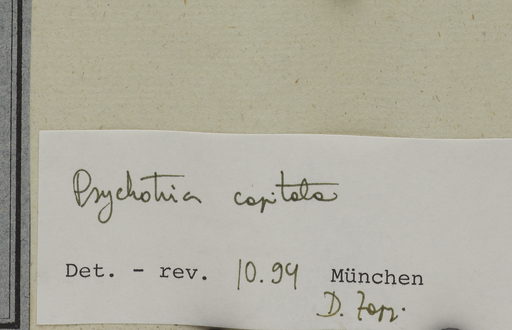 Psychotria capitata
Det. - rev. 10.94 München
D. Zappi.